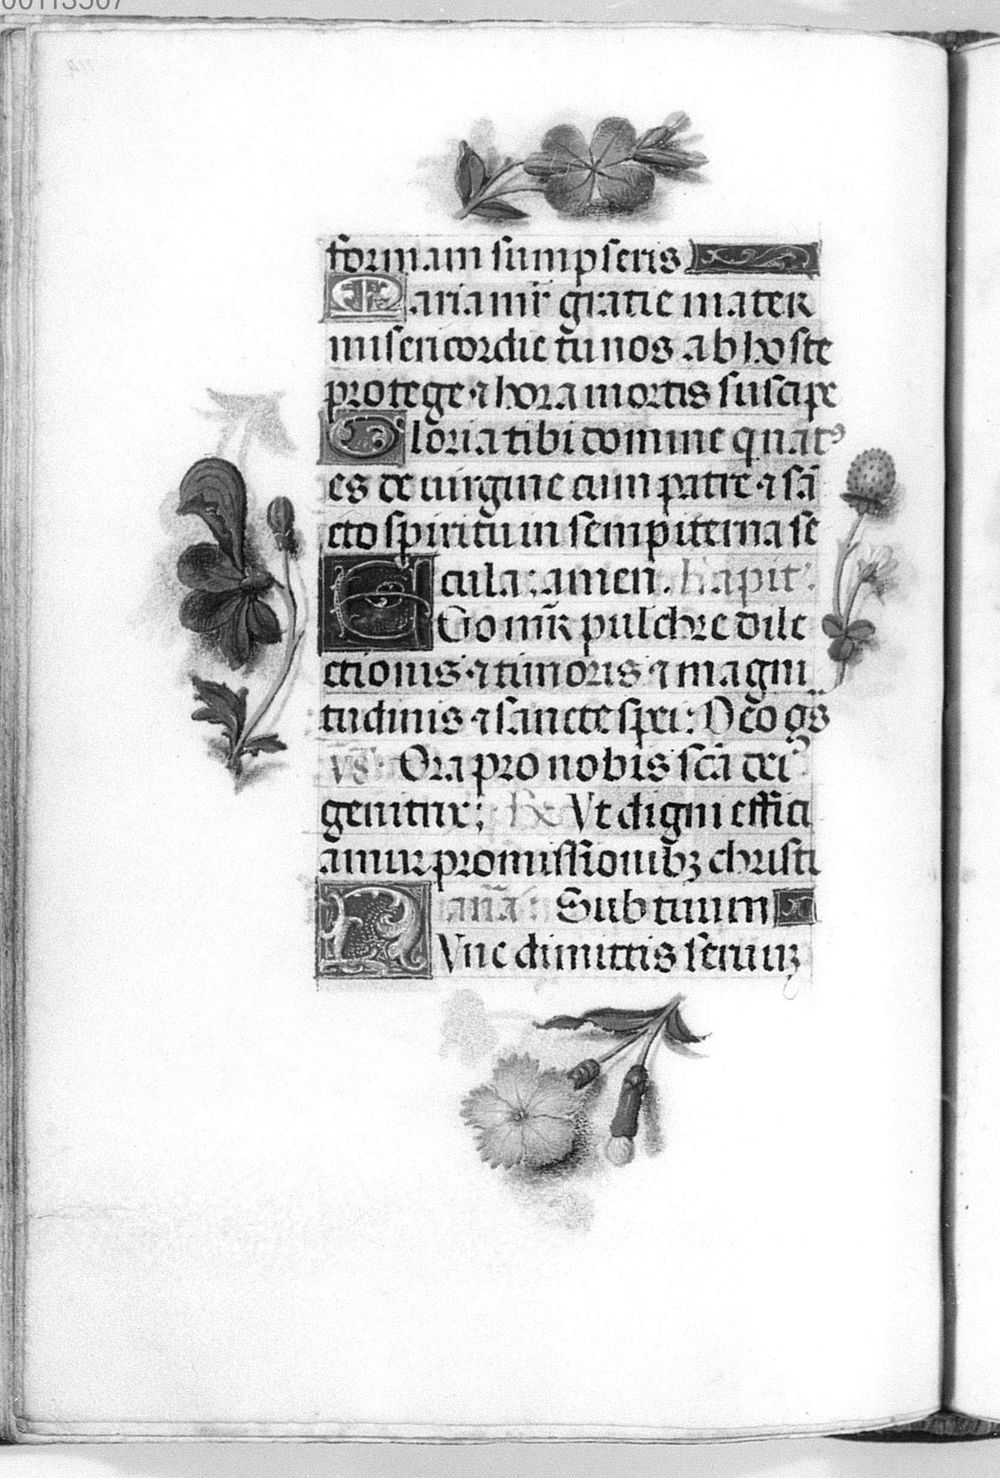 00113507
formam sumpseris
Maria mr̄ gratie mater
misericordie tu nos ab hoste
protege ⁊ hora mortis suscipe
Gloria tibi domine qui nat⁹
es de uirgine cum patre ⁊ sā
cto spiritu in sempiterna se
cula: amen. Kapit᷒.
EGo mr̄ pulchre dile
ctionis ⁊ timoris ⁊ magni
tudinis ⁊ sancte spei: Deo gs̄
vs̄. Ora pro nobis scā dei
genitrix; Rx Vt digni effici
amur promissionibꝫ christi
anā: Sub tuum
NVnc dimittis seruuꝫ